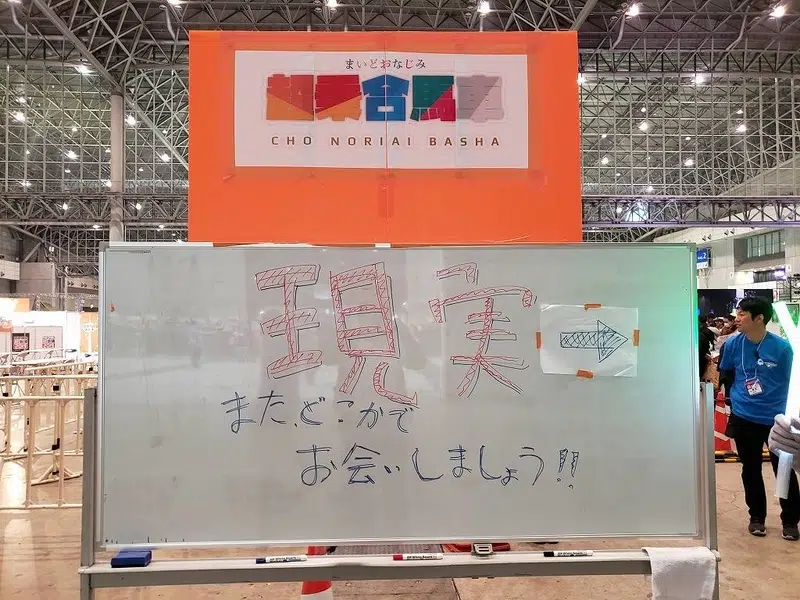 まいどおなじみ
超乗合馬車
CHO NORIAI BASHA
現実
また、どこかで
お会いしましょう!!